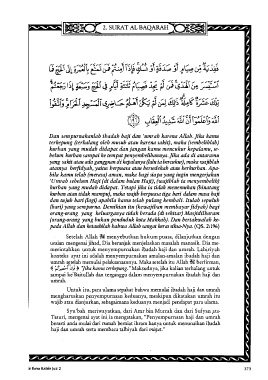 2. SURAT AL BAQARAH
فَفِدْيَةٌ مِّن صِيَامٍ أَوْ صَدَقَةٍ أَوْ نُسُكٍ فَإِذَا أَمِنتُمْ فَمَن تَمَتَّعَ بِالْعُمْرَةِ إِلَى الْحَجِّ فَمَا
اسْتَيْسَرَ مِنَ الْهَدْيِ فَمَن لَّمْ يَجِدْ فَصِيَامُ ثَلَاثَةِ أَيَّامٍ فِي الْحَجِّ وَسَبْعَةٍ إِذَا رَجَعْتُمْ
تِلْكَ عَشَرَةٌ كَامِلَةٌ ذَلِكَ لِمَن لَّمْ يَكُنْ أَهْلُهُ حَاضِرِي الْمَسْجِدِ الْحَرَامِ وَاتَّقُوا
اللَّهَ وَاعْلَمُوا أَنَّ اللَّهَ شَدِيدُ الْعِقَابِ
Dan sempurnakanlah ibadah haji dan 'umrah karena Allah. Jika kamu
terkepung (terhalang oleh musuh atau karena sakit), maka (sembelihlah)
kurban yang mudah didapat dan jangan kamu mencukur kepalamu, se-
belum kurban sampai ke tempat penyembelihannya. Jika ada di antaramu
yang sakit atau ada gangguan di kepalanya (lalu ia bercukur), maka wajiblah
atasnya berfidyah, yaitu berpuasa atau bersedekah atau berkorban. Apa-
bila kamu telah (merasa) aman, maka bagi siapa yang ingin mengerjakan
'Umrah sebelum Haji (di dalam bulan Haji), (wajiblah ia menyembelih)
kurban yang mudah didapat. Tetapi jika ia tidak menemukan (binatang
kurban atau tidak mampu), maka wajib berpuasa tiga hari dalam masa haji
dan tujuh hari (lagi) apabila kamu telah pulang kembali. Itulah sepuluh
(hari) yang sempurna. Demikian itu (kewajiban membayar fidyah) bagi
orang-orang yang keluarganya tidak berada (di sekitar) Masjidilharam
(orang-orang yang bukan penduduk kota Makkah). Dan bertakwalah ke-
pada Allah dan ketahuilah bahwa Allah sangat keras siksa-Nya. (QS. 2:196)
Setelah Allah ﷻ menyebutkan hukum puasa, dilanjutkan dengan
uraian mengenai jihad, Dia beranjak menjelaskan masalah manasik. Dia me-
merintahkan untuk menyempurnakan ibadah haji dan umrah. Lahiriyah
konteks ayat ini adalah menyempurnakan amalan-amalan ibadah haji dan
umrah setelah memulai pelaksanaannya. Maka setelah itu Allah ﷻ berfirman,
﴿ فَإِنْ أُحْصِرْتُمْ ﴾ "Jika kamu terkepung." Maksudnya, jika kalian terhalang untuk
sampai ke Baitullah dan terganggu dalam menyempurnakan ibadah haji dan
umrah.
Untuk itu, para ulama sepakat bahwa memulai ibadah haji dan umrah
mengharuskan penyempurnaan keduanya, meskipun dikatakan umrah itu
wajib atau disunnahkan, sebagaimana keduanya menjadi pendapat para ulama.
Syu'bah meriwayatkan, dari Amr bin Murrah dan dari Sufyan ats-
Tsauri, mengenai ayat ini ia mengatakan, "Penyempurnaan haji dan umrah
berarti anda mulai dari rumah berniat ihram hanya untuk menunaikan ibadah
haji dan umrah serta membaca talbiyah dari miqat.
373